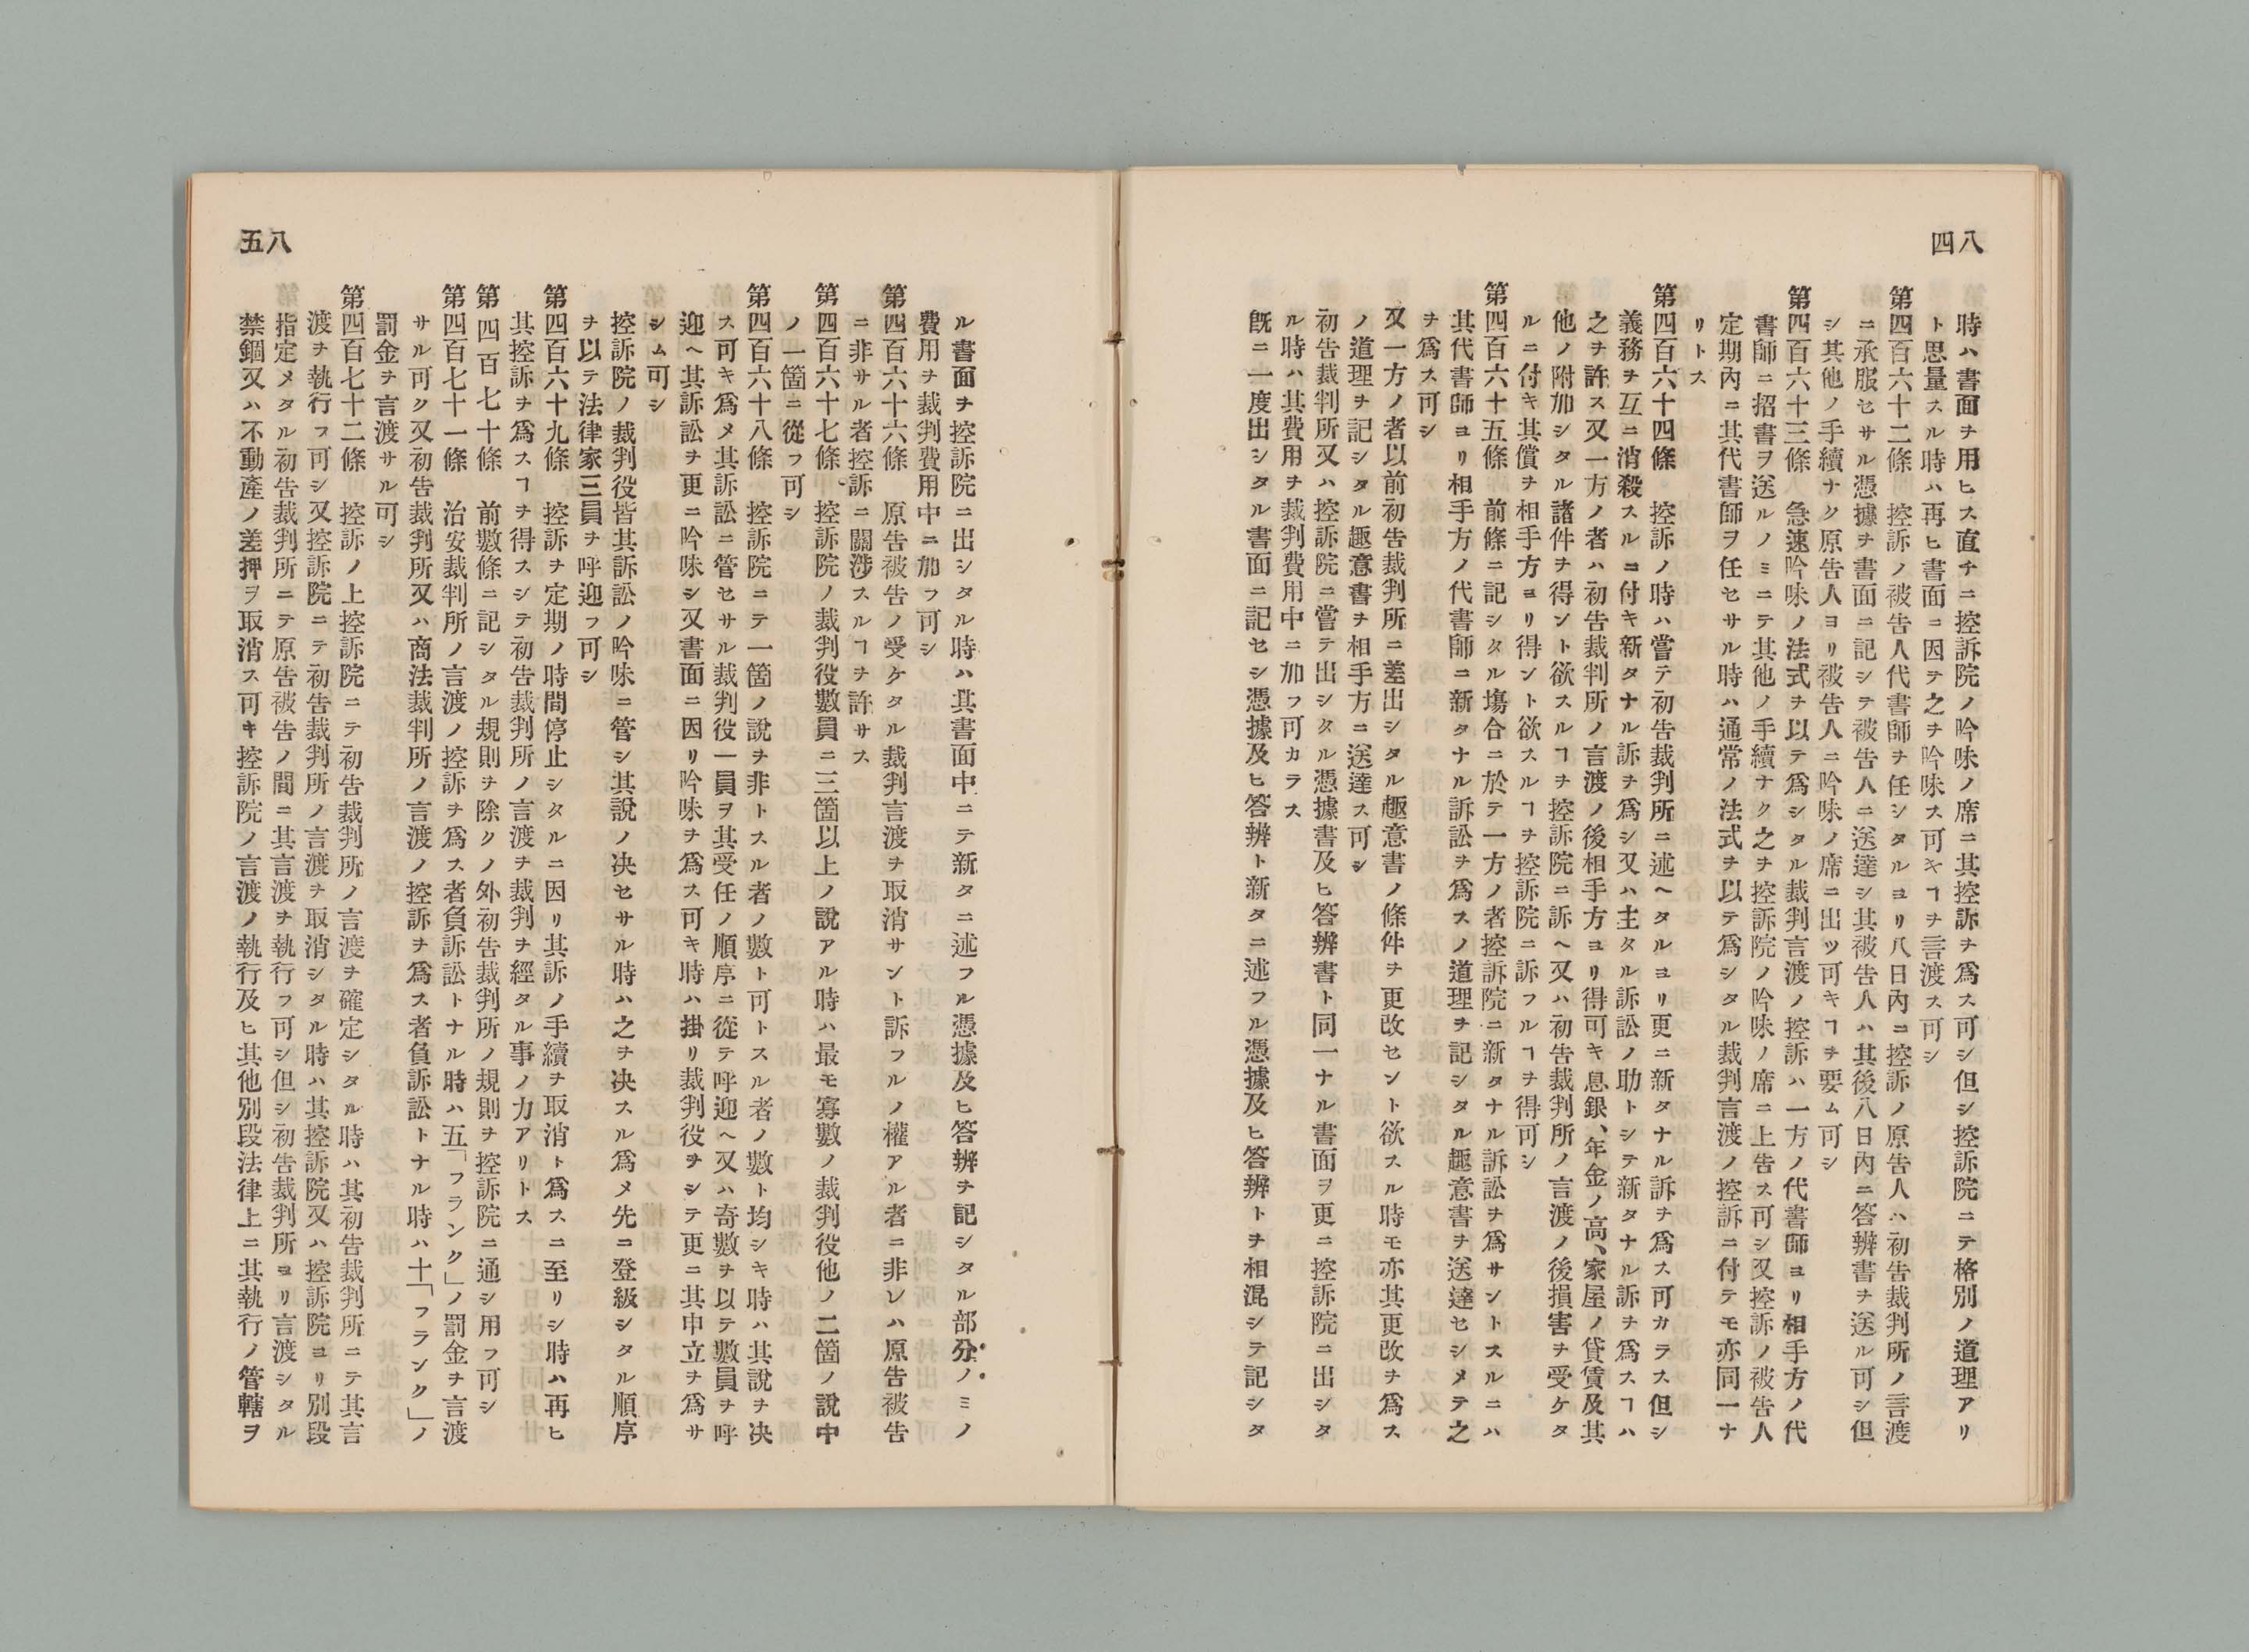 八四
時ハ書面ヲ用ヒス直チニ控訴院ノ吟味ノ席ニ其控訴ヲ爲ス可シ但シ控訴院ニテ格別ノ道理アリ
ト思量スル時ハ再ヒ書面ニ因テ之ヲ吟味ス可キヿヲ言渡ス可シ
第四百六十二條　控訴ノ被告人代書師ヲ任シタルヨリ八日內ニ控訴ノ原告人ハ初告裁判所ノ言渡
ニ承服セサル憑據ヲ書面ニ記シテ被告人ニ送達シ其被告人ハ其後八日內ニ答辨書ヲ送ル可シ但
シ其他ノ手續ナク原告人ヨリ被告人ニ吟味ノ席ニ出ツ可キヿヲ要ム可シ
第四百六十三條　急速吟味ノ法式ヲ以テ爲シタル裁判言渡ノ控訴ハ一方ノ代書師ヨリ相手方ノ代
書師ニ招書ヲ送ルノミニテ其他ノ手續ナク之ヲ控訴院ノ吟味ノ席ニ上告ス可シ又控訴ノ被告人
定期內ニ其代書師ヲ任セサル時ハ通常ノ法式ヲ以テ爲シタル裁判言渡ノ控訴ニ付テモ亦同一ナ
リトス
第四百六十四條　控訴ノ時ハ嘗テ初告裁判所ニ述ヘタルヨリ更ニ新タナル訴ヲ爲ス可カラス但シ
義務ヲ互ニ消殺スルコ付キ新タナル訴ヲ爲シ又ハ主タル訴訟ノ助トシテ新タナル訴ヲ爲スヿハ
之ヲ許ス又一方ノ者ハ初告裁判所ノ言渡ノ後相手方ヨリ得可キ息銀、年金ノ高、家屋ノ貸賃及其
他ノ附加シタル諸件ヲ得ント欲スルヿヲ控訴院ニ訴ヘ又ハ初告裁判所ノ言渡ノ後損害ヲ受ケタ
ルニ付キ其償ヲ相手方ヨリ得ント欲スルヿヲ控訴院ニ訴フルヿヲ得可シ
第四百六十五條　前條ニ記シタル塲合ニ於テ一方ノ者控訴院ニ新タナル訴訟ヲ爲サントスルニハ
其代書師ヨリ相手方ノ代書師ニ新タナル訴訟ヲ爲スノ道理ヲ記シタル趣意書ヲ送達セシメテ之
ヲ爲ス可シ
又一方ノ者以前初告裁判所ニ差出シタル趣意書ノ條件ヲ更改セント欲スル時モ亦其更改ヲ爲ス
ノ道理ヲ記シタル趣意書ヲ相手方ニ送達ス可シ
初告裁判所又ハ控訴院ニ嘗テ出シタル憑據書及ヒ答辨書ト同一ナル書面ヲ更ニ控訴院ニ出シタ
ル時ハ其費用ヲ裁判費用中ニ加フ可カラス
既ニ一度出シタル書面ニ記セシ憑據及ヒ答辨ト新タニ述フル憑據及ヒ答辨トヲ相混シテ記シタ
八五
ル書面ヲ控訴院ニ出シタル時ハ其書面中ニテ新タニ述フル憑據及ヒ答辨ヲ記シタル部分ノミノ
費用ヲ裁判費用中ニ加フ可シ
第四百六十六條　原告被告ノ受ケタル裁判言渡ヲ取消サント訴フルノ權アル者ニ非レハ原告被告
ニ非サル者控訴ニ關涉スルヿヲ許サス
第四百六十七條　控訴院ノ裁判役數員ニ三箇以上ノ說アル時ハ最モ寡數ノ裁判役他ノ二箇ノ說中
ノ一箇ニ從フ可シ
第四百六十八條　控訴院ニテ一箇ノ說ヲ非トスル者ノ數ト可トスル者ノ數ト均シキ時ハ其說ヲ决
ス可キ爲メ其訴訟ニ管セサル裁判役一員ヲ其受任ノ順序ニ從テ呼迎ヘ又ハ奇數ヲ以テ數員ヲ呼
迎ヘ其訴訟ヲ更ニ吟味シ又書面ニ因リ吟味ヲ爲ス可キ時ハ掛リ裁判役ヲシテ更ニ其申立ヲ爲サ
シム可シ
控訴院ノ裁判役皆其訴訟ノ吟味ニ管シ其說ノ决セサル時ハ之ヲ决スル爲メ先ニ登級シタル順序
ヲ以テ法律家三員ヲ呼迎フ可シ
第四百六十九條　控訴ヲ定期ノ時間停止シタルニ因リ其訴ノ手續ヲ取消ト爲スニ至リシ時ハ再ヒ
其控訴ヲ爲スヿヲ得スシテ初告裁判所ノ言渡ヲ裁判ヲ經タル事ノ力アリトス
第四百七十條　前數條ニ記シタル規則ヲ除クノ外初告裁判所ノ規則ヲ控訴院ニ通シ用フ可シ
第四百七十一條　治安裁判所ノ言渡ノ控訴ヲ爲ス者負訴訟トナル時ハ五「フランク」ノ罰金ヲ言渡
サル可ク又初告裁判所又ハ商法裁判所ノ言渡ノ控訴ヲ爲ス者負訴訟トナル時ハ十「フランク」ノ
罰金ヲ言渡サル可シ
第四百七十二條　控訴ノ上控訴院ニテ初告裁判所ノ言渡ヲ確定シタル時ハ其初告裁判所ニテ其言
渡ヲ執行フ可シ又控訴院ニテ初告裁判所ノ言渡ヲ取消シタル時ハ其控訴院又ハ控訴院ヨリ別段
指定メタル初告裁判所ニテ原告被告ノ間ニ其言渡ヲ執行フ可シ但シ初告裁判所ヨリ言渡シタル
禁錮又ハ不動產ノ差押ヲ取消ス可キ控訴院ノ言渡ノ執行及ヒ其他別段法律上ニ其執行ノ管轄ヲ